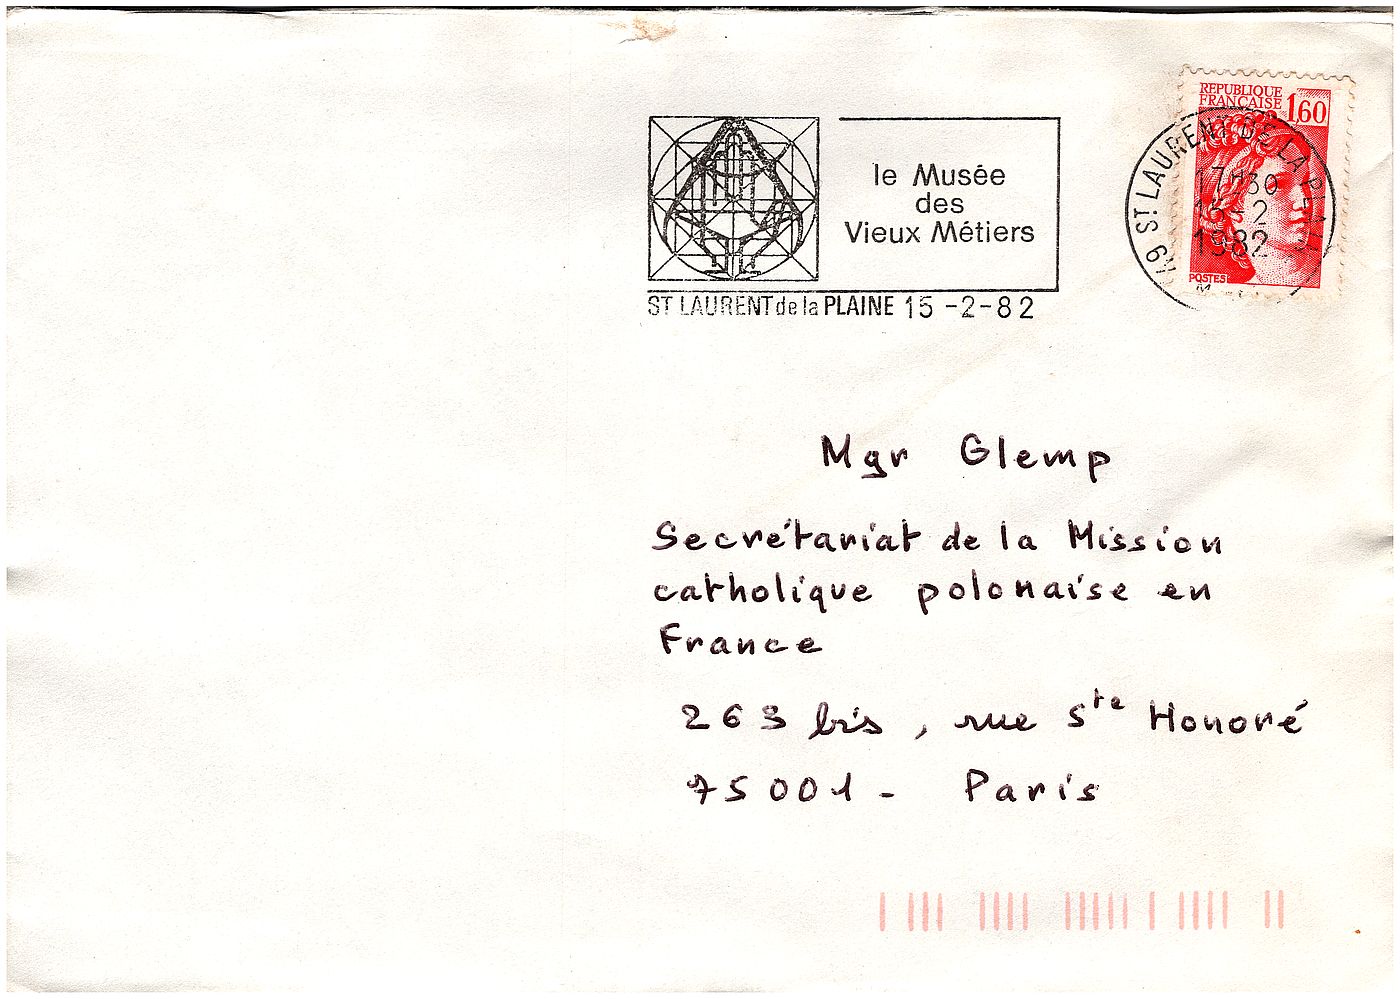 REPUBLIQUE
FRANÇAISE 1,60
POSTES
49 ST LAURENT DE LA PLAINE
17H30
15-2
1982
le Musée
des
Vieux Métiers
ST LAURENT de la PLAINE 15-2-82
Mgr Glemp
Secrétariat de la Mission
catholique polonaise en
France
263 bis, rue Ste Honoré
75001 - Paris